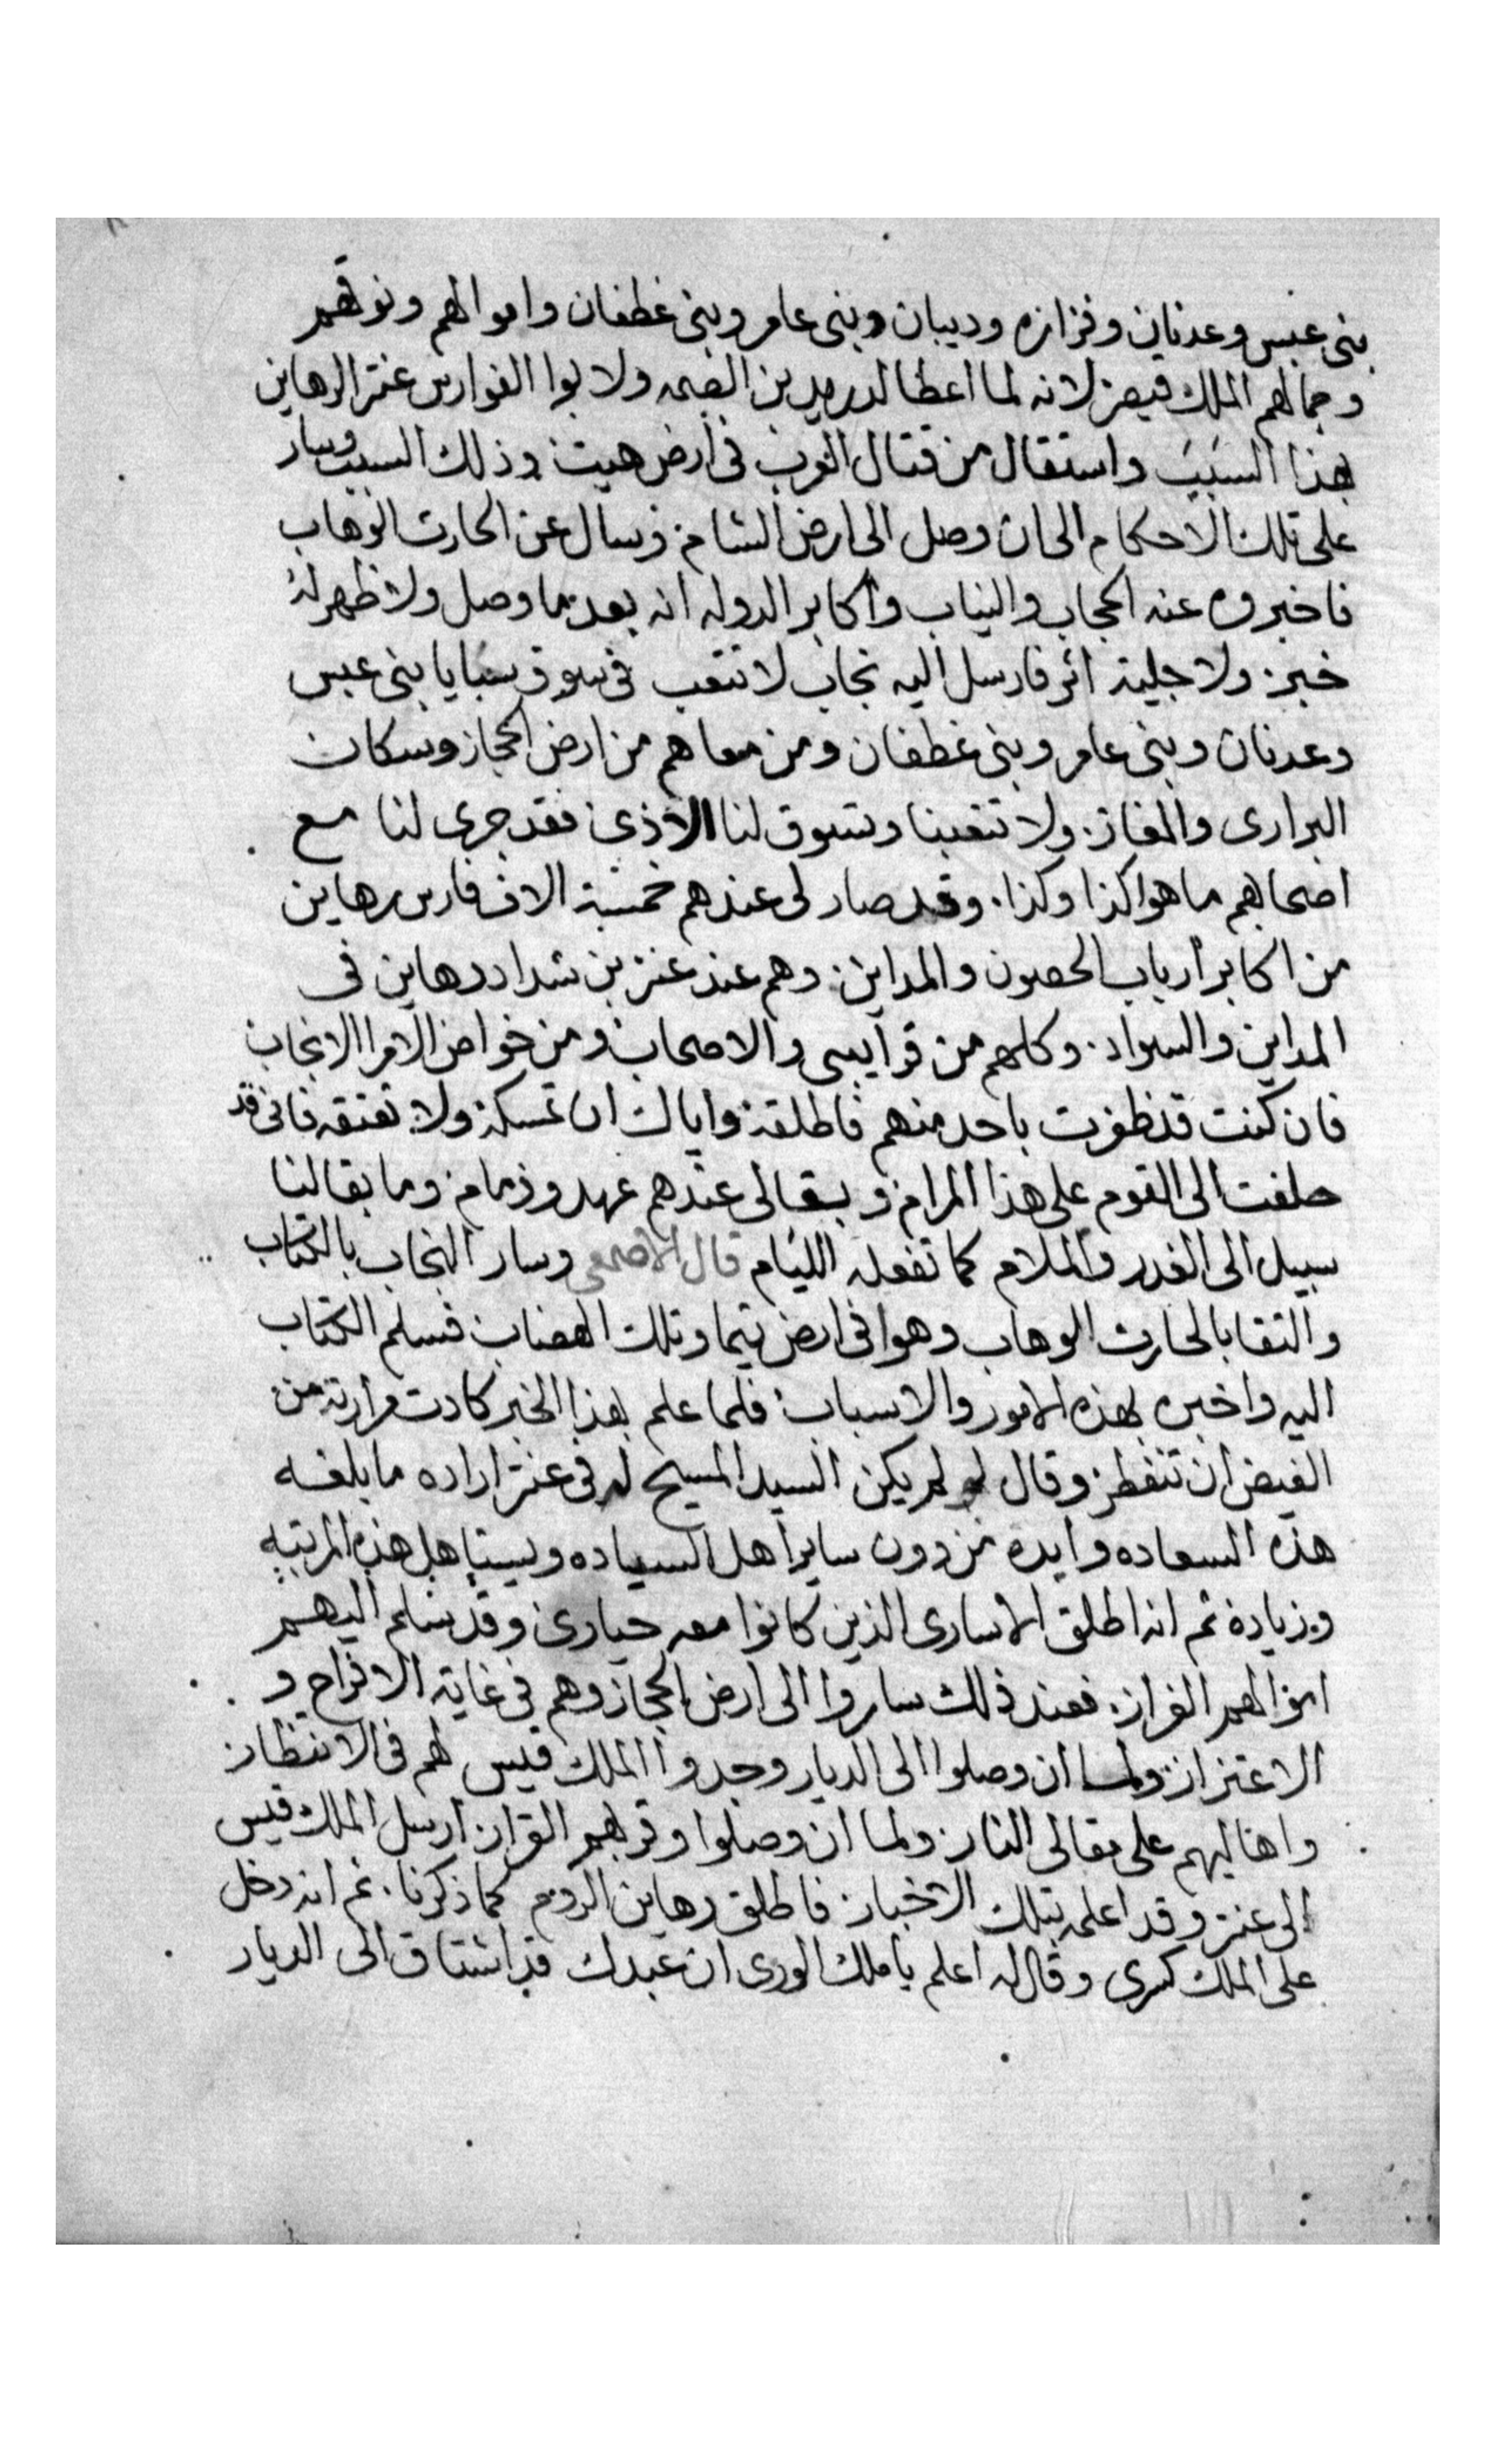 بنى عبس وعدنان وفزازه وديبان وبنى عامر وبنى غطفان واموالهم ونوقهم
وجمالهم الملك قيصر لانه لما اعطا لدريد بن الصمه ولا بوا الفوارس عنتر الرهاين
بهذا السبب واستقال من قتال العرب فى ارض هيت وذلك السبب وسار
على تلك الاحكام الى ان وصل الى ارض الشام وسال عن الحارت الوهاب
فاخبروه عنه الحجاب والنياب واكابر الدوله انه بعد ما وصل ولا ظهر له
خبر ولا جلية اثر فارسل اليه نجاب لا تتعب فى سوق سبايا بنى عبس
وعدنان وبنى عامر وبنى غطفان ومن معاهم من ارض الحجاز وسكان
البرارى والمفاز ولا تتعبنا وتسوق لنا الاذى فقد جرى لنا مع
اصحابهم ما هوا كذا وكذا وقد صار لى عندهم خمسة الاف فارس رهاين
من اكابر ارباب الحصون والمداين وهم عند عنتر بن شداد رهاين فى
المداين والسواد وكلهم من قرايبى والاصحاب ومن خواص الامرا الانجاب
فان كنت قد ظفرت باحد منهم فاطلقه واياك ان تمسكه ولا تعتقه فانى قد
حلفت الى القوم على هذا المرام وبقا لى عندهم عهد وذمام وما بقا لنا
سبيل الى الغدر والملام كما تفعله الليام قال الاصمعى وسار النجاب بالكتاب
والتقا بالحارت الوهاب وهوا فى ارض تيما وتلك الهضاب فسلم الكتاب
اليه واخبره بهذه الامور والاسباب فلما علم بهذا الخبر كادت مرارته من
الغيض ان تنفطر وقال لو لم يكن السيد المسيح له فى عنتر اراده ما بلغه
هذه السعاده وايده من دون ساير اهل السياده ويستاهل هذه المرتبه
وزياده ثم انه اطلق الاسارى الذين كانوا معه حيارى وقد سلم اليهم
اموالهم الغزار فعند ذلك ساروا الى ارض الحجاز وهم فى غاية الافراح و
الاعتزاز ولما ان وصلوا الى الديار وجدوا الملك قيس لهم فى الانتظار
واهاليهم على مقالى النار ولما ان وصلوا وقر بهم القرار ارسل الملك قيس
الى عنتر وقد اعلمه بتلك الاخبار فاطلق رهاين الروم كما ذكرنا ثم انه دخل
على الملك كسرى وقال له اعلم يا ملك الورى ان عبدك قد اشتاق الى الديار